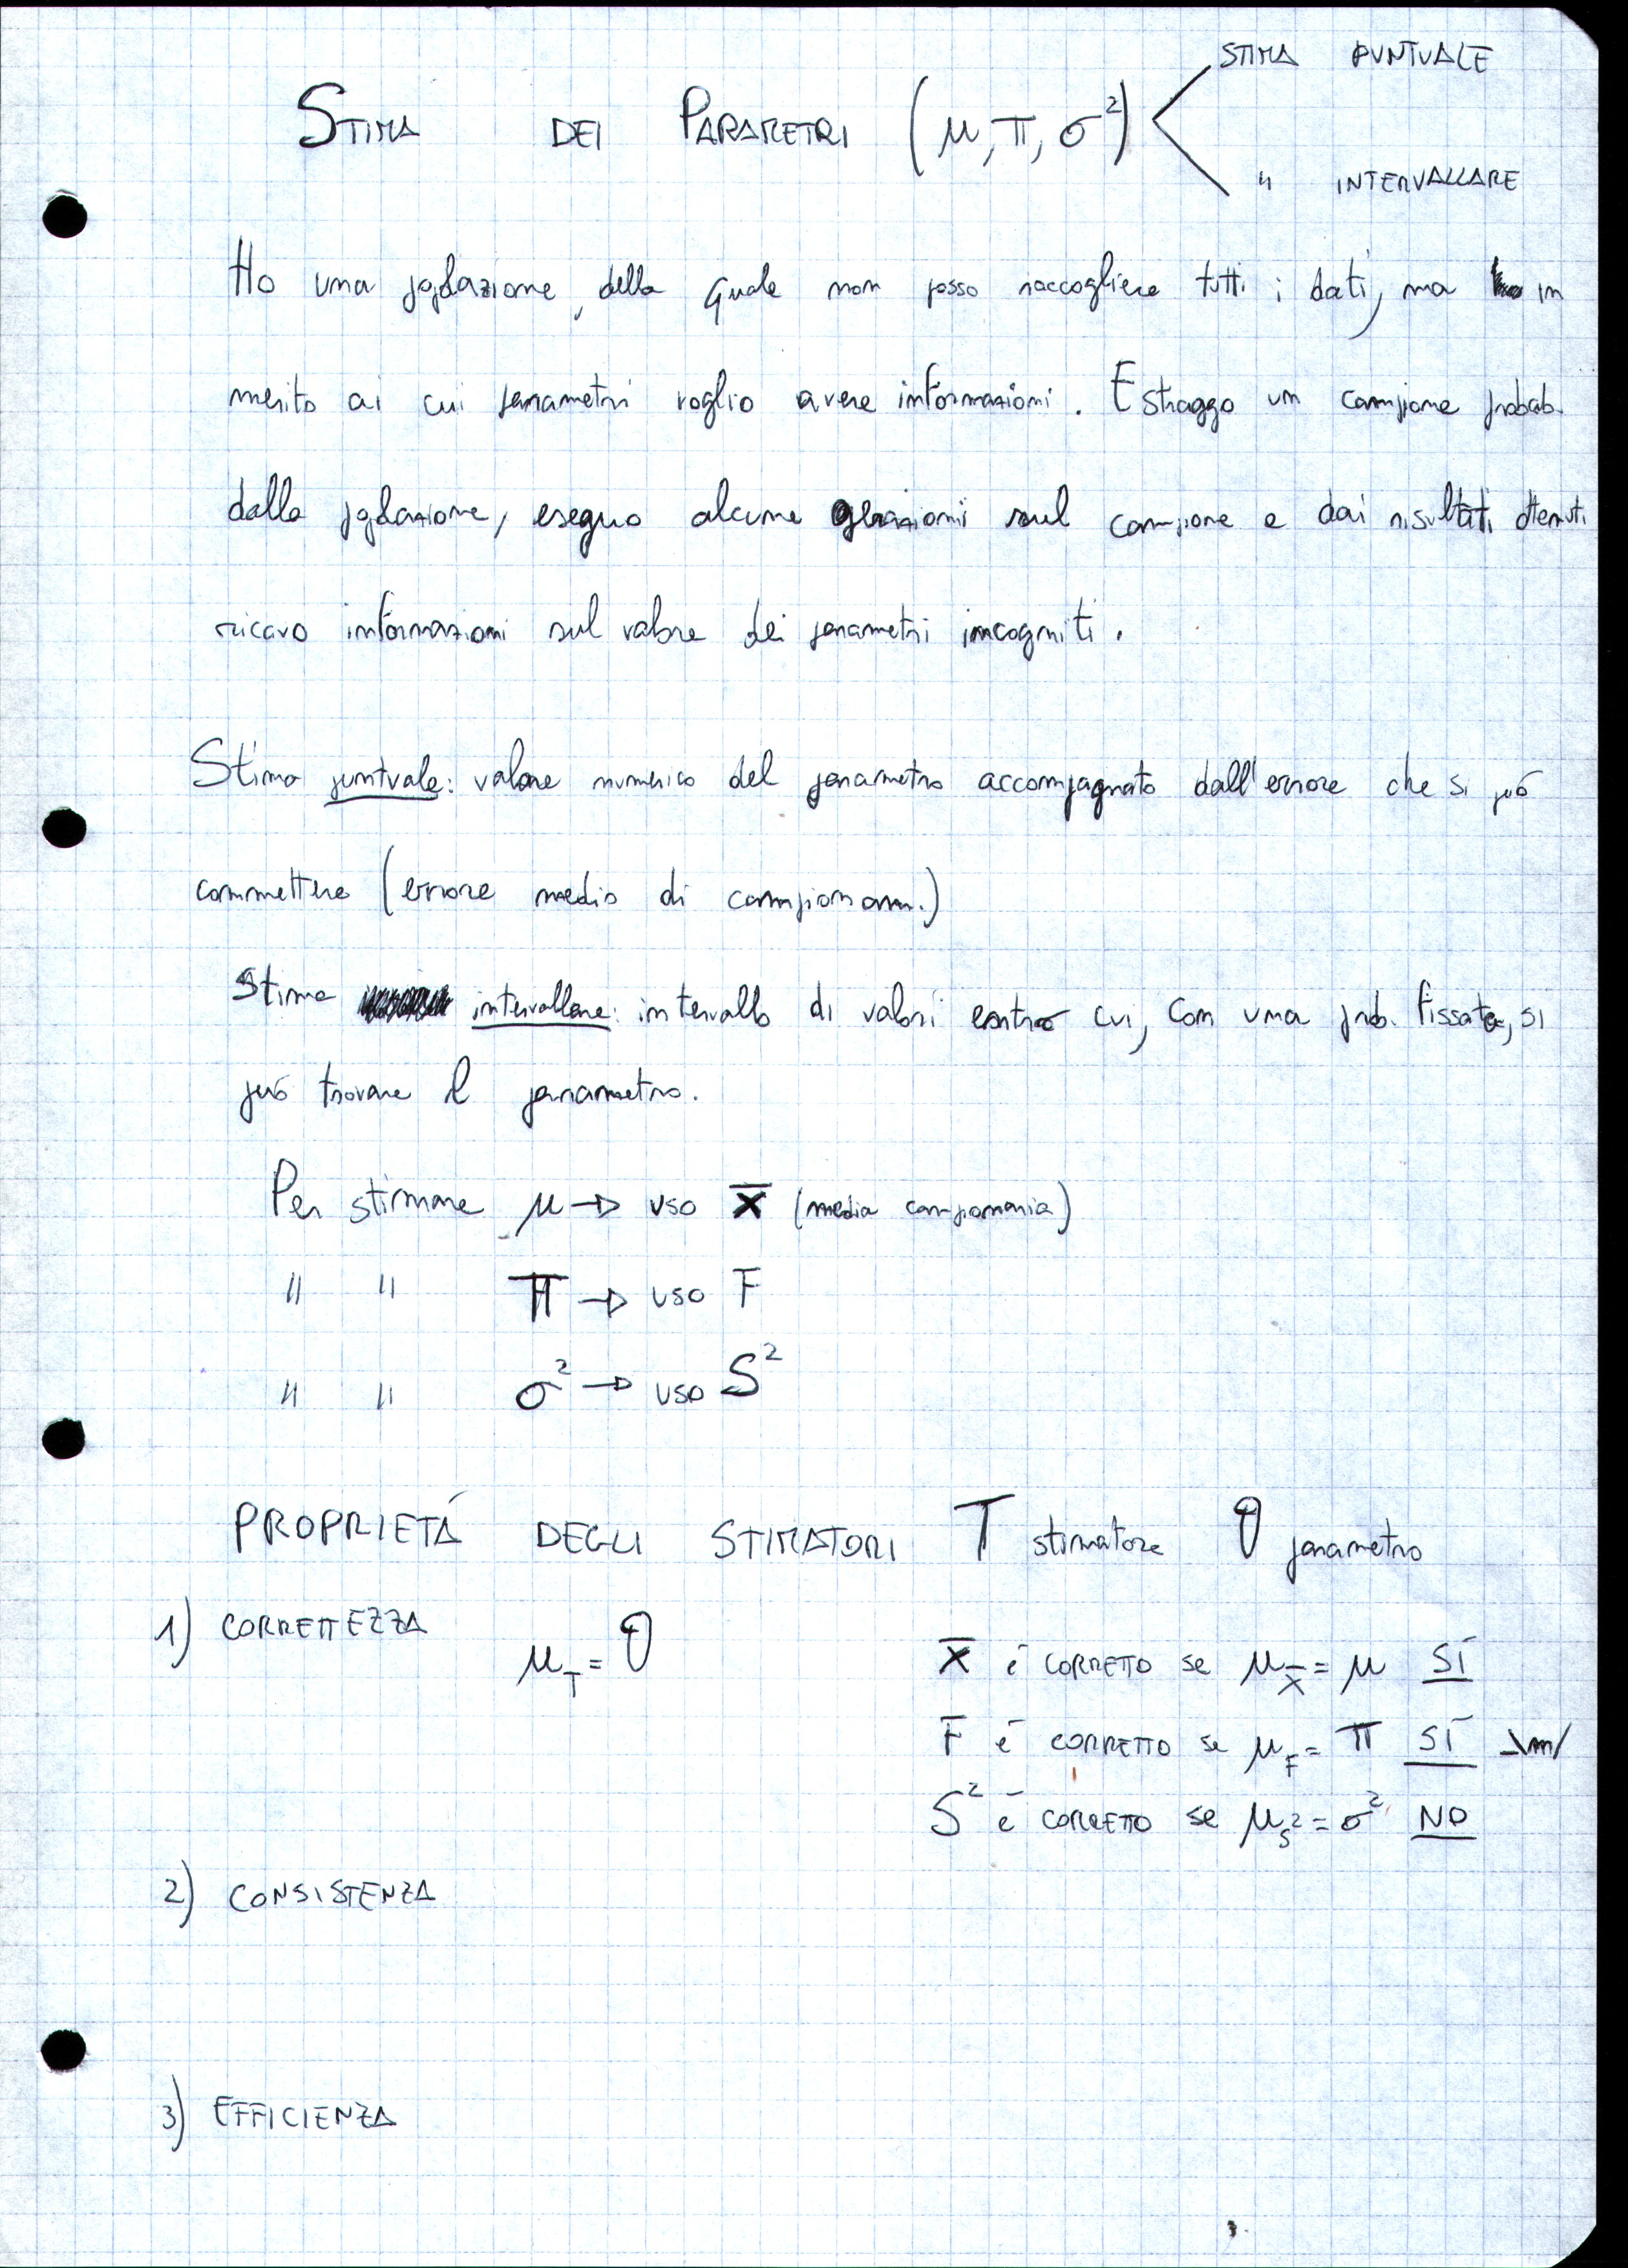 STIMA PUNTUALE
STIMA DEI PARAMETRI (μ, π, σ²)
" INTERVALLARE
Ho una popolazione, della quale non posso raccogliere tutti i dati, ma in
merito ai cui parametri voglio avere informazioni. Estraggo un campione probab.
dalla popolazione, eseguo alcune operazioni sul campione e dai risultati ottenuti
ricavo informazioni sul valore dei parametri incogniti.
Stima puntuale: valore numerico del parametro accompagnato dall'errore che si può
commettere (errore medio di campionam.)
Stima intervallare: intervallo di valori entro cui, con una prob. fissata, si
può trovare il parametro.
Per stimare μ → uso X̅ (media campionaria)
" " π → uso F
" " σ² → uso S²
PROPRIETÁ DEGLI STIMATORI T stimatore θ parametro
1) CORRETTEZZA μ_T = θ
X̅ é CORRETTO se μ_X̅ = μ SÍ
F é CORRETTO se μ_F = π SÍ
S² é CORRETTO se μ_S² = σ² NO
2) CONSISTENZA
3) EFFICIENZA